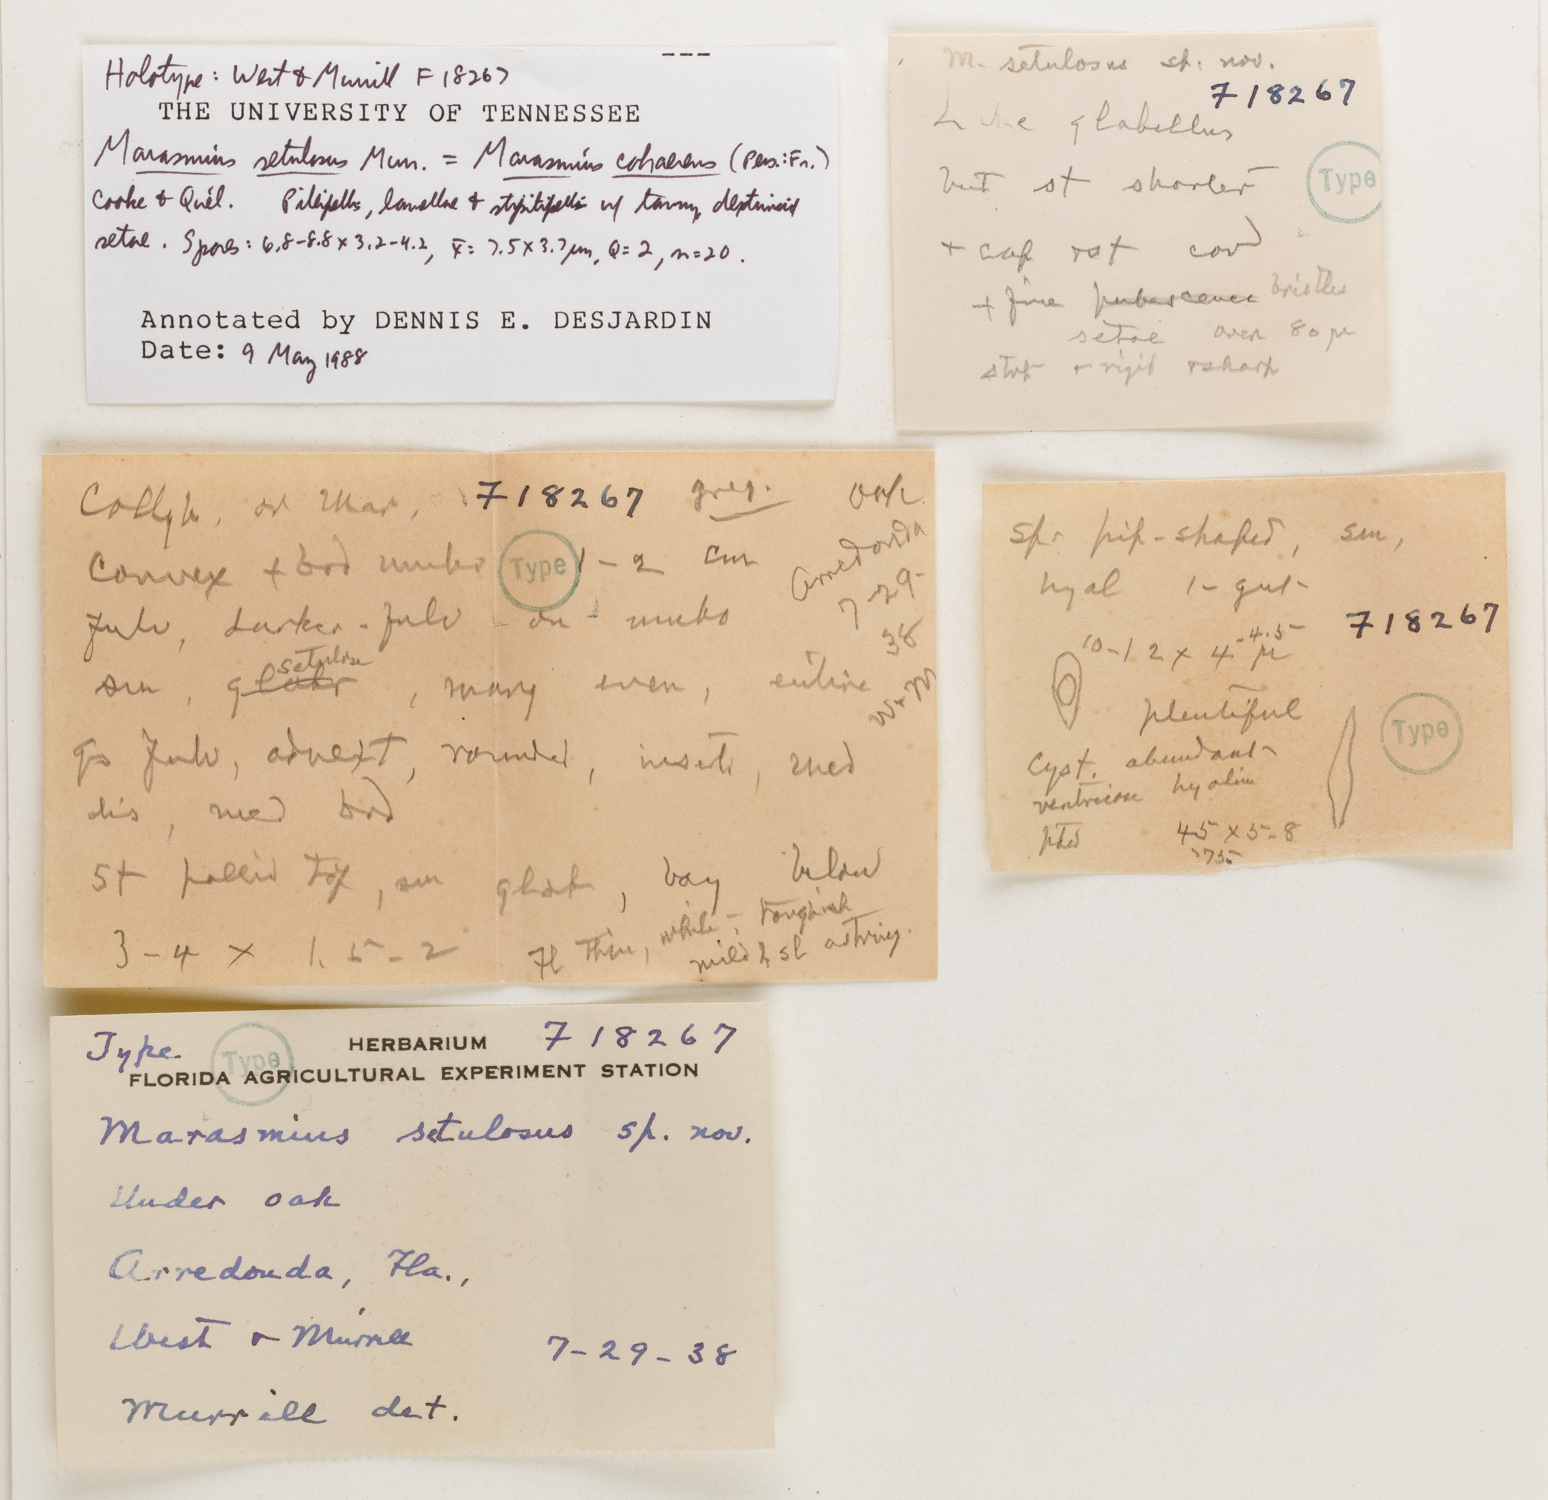 Holotype: West & Murrill F 18267
THE UNIVERSITY OF TENNESSEE
Marasmius setulosus Murr. = Marasmius cohaerens (Pers.:Fr.)
Cooke & Quél. Pileipellis, lamellae & stipitipellis w/ tawny dextrinoid
setae. Spores: 6.8-8.8 x 3.2-4.2, x̄= 7.5 x 3.7 µm, Q= 2, n=20.
Annotated by DENNIS E. DESJARDIN
Date: 9 May 1988
M. setulosus sp. nov.
F 18267
Like glabellus
but st shorter
Type
+ cap cov
+ fine pubescence bristles
setae over 80 µ
+ rigid + sharp
Collyb. or Mar. F 18267 greg. oak
Arredonda
7-29-
38
W + M
convex + brd umbo Type 1-2 cm
fulv, darker-fulv on umbo
setulose
sm, glabr, marg even, entire
gs fulv, adnext, rounded, inserted, med
dis, med brd
St pallid top, sm glab, bay below
3-4 x 1.5-2 Fl thin, white, toughish
mild & sl astring.
sp. pip-shaped, sm,
hyal 1-gut
F 18267
10-12 x 4-4.5 µ
plentiful
Type
Cyst. abundant
ventricose hyalin
ptd 45 x 5-8
Type Type HERBARIUM F 18267
FLORIDA AGRICULTURAL EXPERIMENT STATION
Marasmius setulosus sp. nov.
Under oak
Arredonda, Fla.,
West & Murrill 7-29-38
Murrill det.